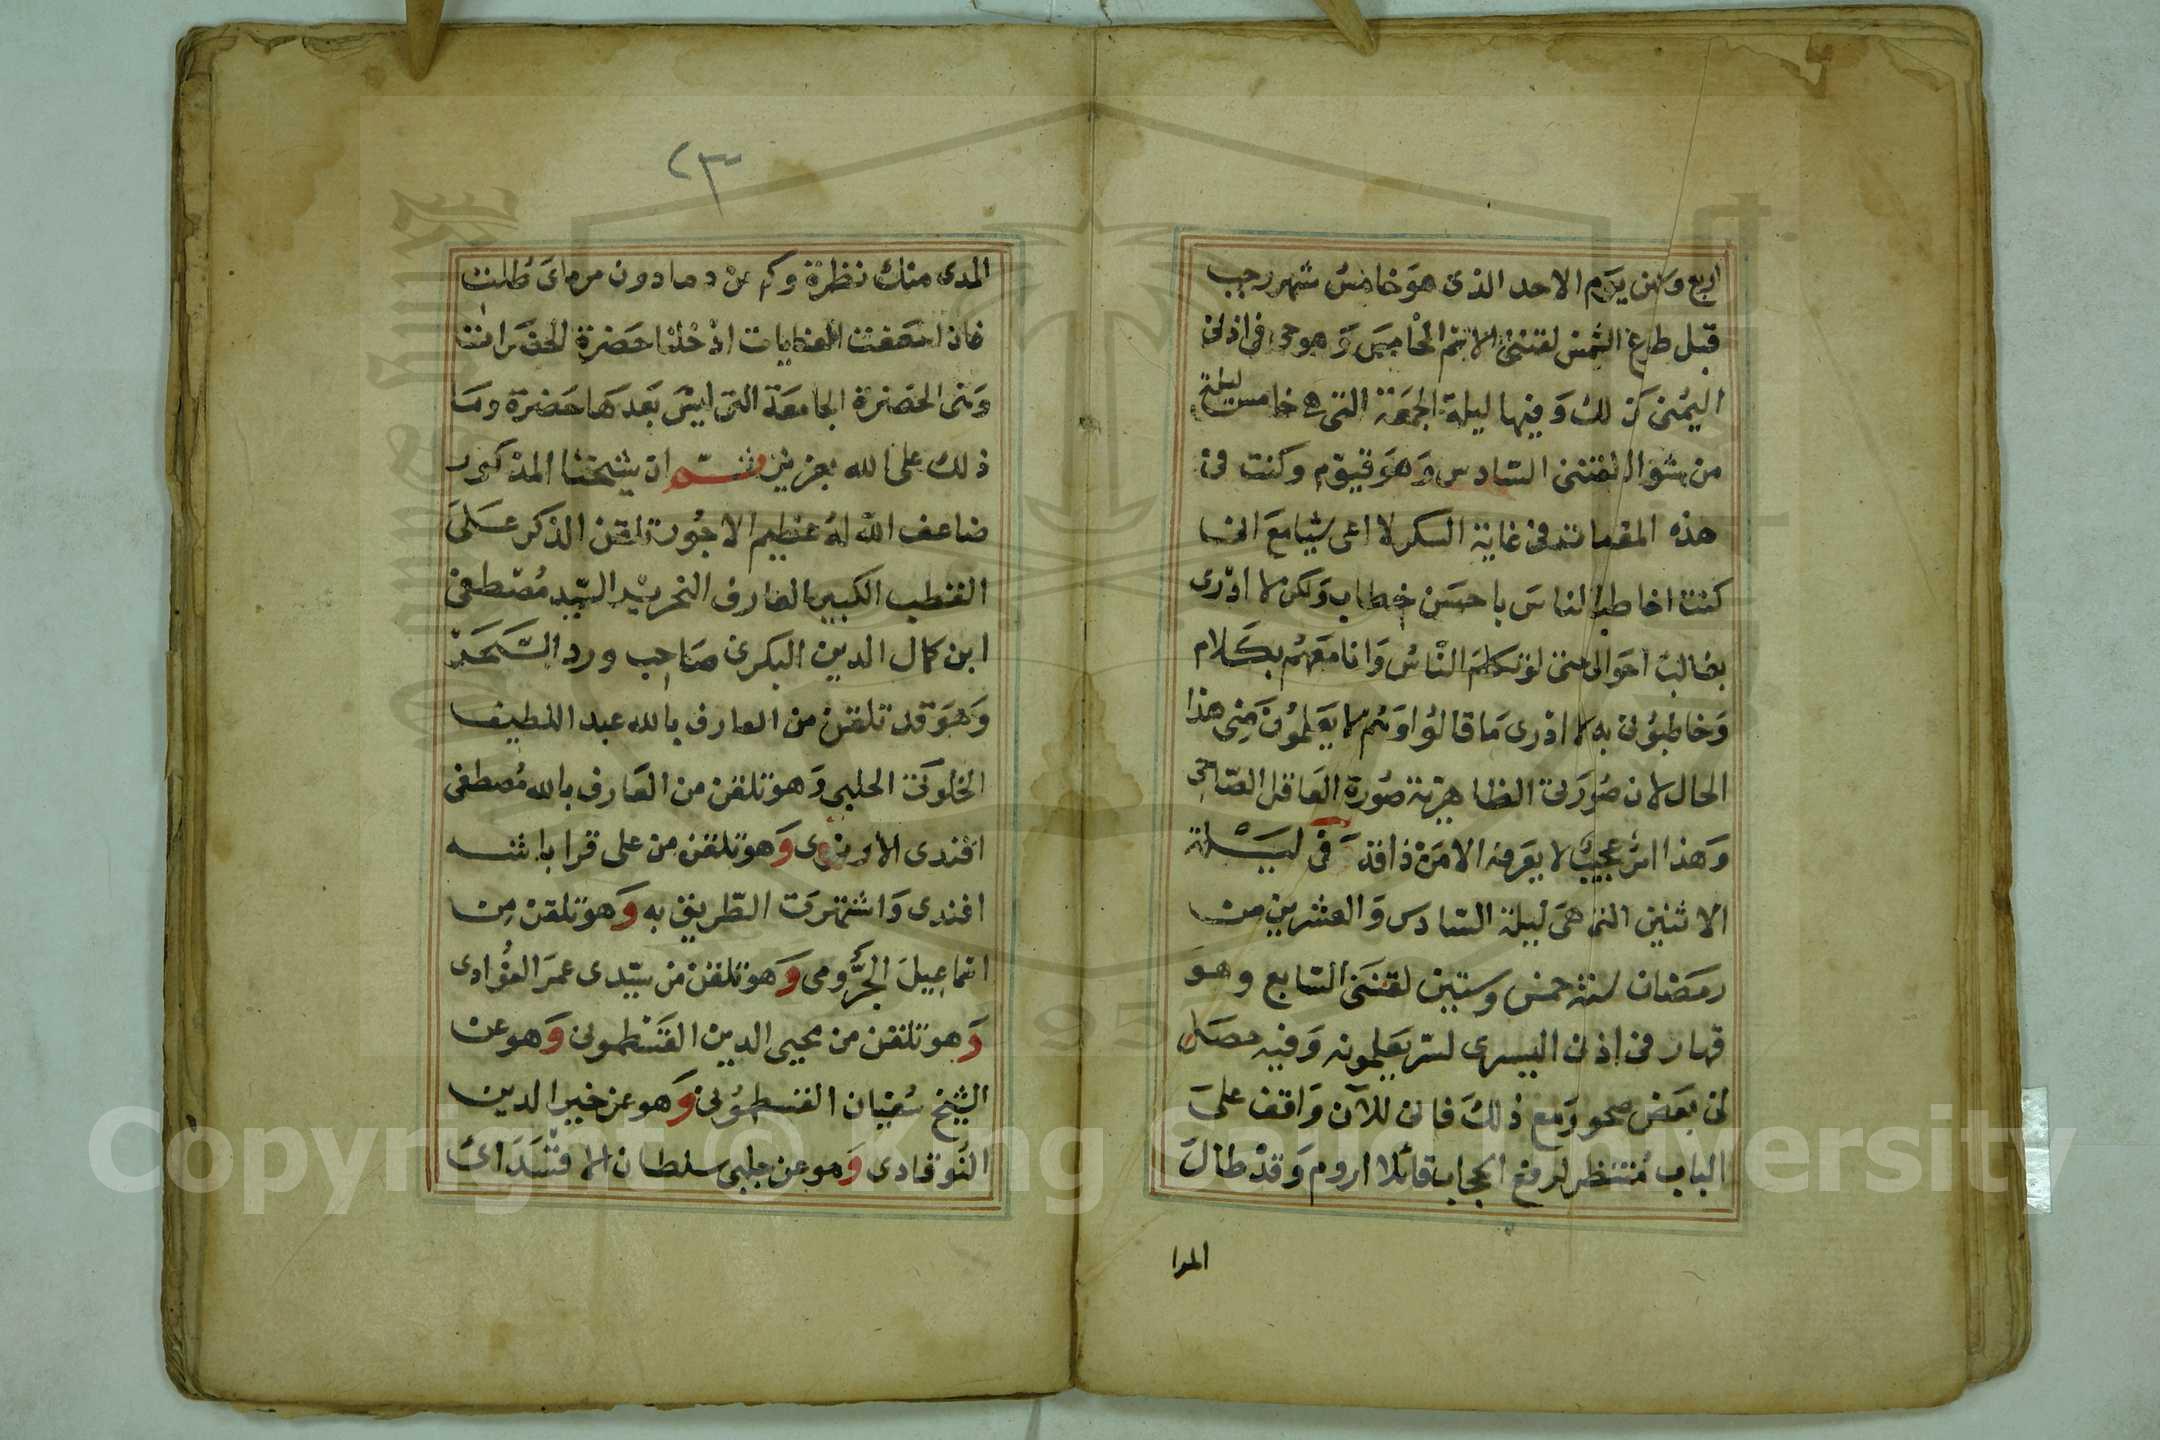 اربع وستين يوم الاحد الذى هو خامس شهر رجب
قبل طلوع الشمس لقننى الاسم الخامس وهو حى فى اذنى
اليمنى كذلك وفيها ليلة الجمعة التى هى خامس ليلة
من شوال لقننى السادس وهو قيوم وكنت فى
هذه المقامات فى غاية السكر لا اعى شيا مع انى
كنت اخاطب الناس باحسن خطاب ولكن لا ادرى
بغالب احوالى حتى لو تكلم الناس وانا معهم بكلام
وخاطبونى به لا ادرى ما قالوا وهم لا يعلمون منى هذا
الحال لان صورتى الظاهرية صورة العاقل الصاحى
وهذا امر عجيب لا يعرفه الا من ذاقه وفى ليلة
الاثنين التى هى ليلة السادس والعشرين من
رمضان سنة خمس وستين لقننى السابع وهو
قهار فى اذنى اليسرى لسر يعلمونه وفيه حصل
لى بعض صحو ومع ذلك فانى للآن واقف على
الباب منتظر لرفع الحجاب قائلا اروم وقد طال
المدا
٢٣
المدى منك نظرة وكم من دما دون مرماى طلت
فاذا اسعفت العنايات ادخلنا حضرة الحق
وهى الحضرة الجامعة التى ليس بعدها حضرة وما
ذلك على الله بعزيز ثم ان شيخنا المذكور
ضاعف الله له عظيم الاجور تلقن الذكر على
القطب الكبير العارف النحرير السيد مصطفى
ابن كمال الدين البكرى صاحب ورد السحر
وهو قد تلقن من العارف بالله عبد اللطيف
الخلوتى الحلبى وهو تلقن من العارف بالله مصطفى
افندى الادرنوى وهو تلقن من على قرا باشه
افندى واشتهرت الطريق به وهو تلقن من
اسماعيل الجرومى وهو تلقن من سيدى عمر الفؤادى
وهو تلقن من محيى الدين القسطمونى وهو عن
الشيخ شعبان القسطمونى وهو عن خير الدين
التوقادى وهو عن جلبى سلطان الاقسرائى